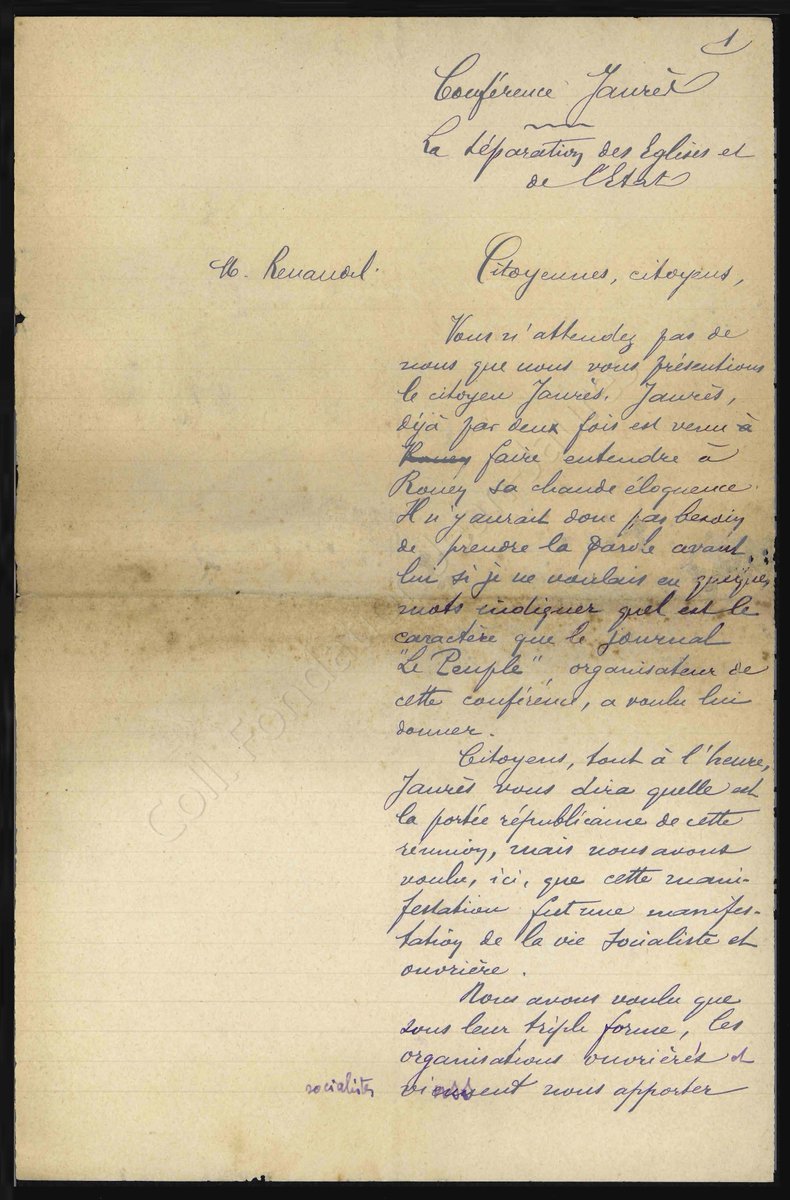 1
Conférence Jaurès
La Séparation des Eglises et
de l'Etat
M. Renaudel.
Citoyennes, citoyens,
Vous n'attendez pas de
nous que nous vous présentions
le citoyen Jaurès. Jaurès,
déjà par deux fois est venu à
Rouen faire entendre à
Rouen sa chaude éloquence.
Il n'y aurait donc pas besoin
de prendre la parole avant
lui si je ne voulais en quelques
mots indiquer quel est le
caractère que le journal
"Le Peuple" organisateur de
cette conférence, a voulu lui
donner.
Citoyens, tout à l'heure,
Jaurès vous dira quelle est
la portée républicaine de cette
réunion, mais nous avons
voulu, ici, que cette mani-
festation fut une manifes-
tation de la vie socialiste et
ouvrière.
Nous avons voulu que
sous leur triple forme, les
organisations ouvrières et
socialistes viennent nous apporter
Coll. Fonds